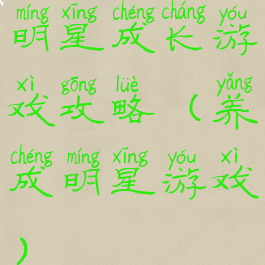 míng xīng chéng cháng yóu
明星成长游
xì gōng lüè yǎng
戏攻略（养
chéng míng xīng yóu xì
成明星游戏
）